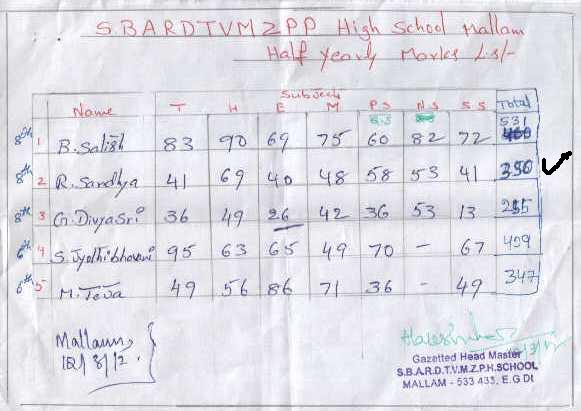 S.B.A.R.D.T.V.M.Z.P.P High School Mallam
Half Yearly Marks List
Subjects
Name T H E M P.S N.S S.S Total
8th 1 B. Satish 83 90 69 75 60 82 72 531
8th 2 R. Sandhya 41 69 40 48 58 53 41 350
8th 3 G. DivyaSri 36 49 26 42 36 53 13 255
6th 4 S. Jyothibhavani 95 63 65 49 70 - 67 409
6th 5 M. Teja 49 56 86 71 36 - 49 347
Mallam
12/3/12.
Gazetted Head Master
S.B.A.R.D.T.V.M.Z.P.H.SCHOOL
MALLAM - 533 433, E.G DI